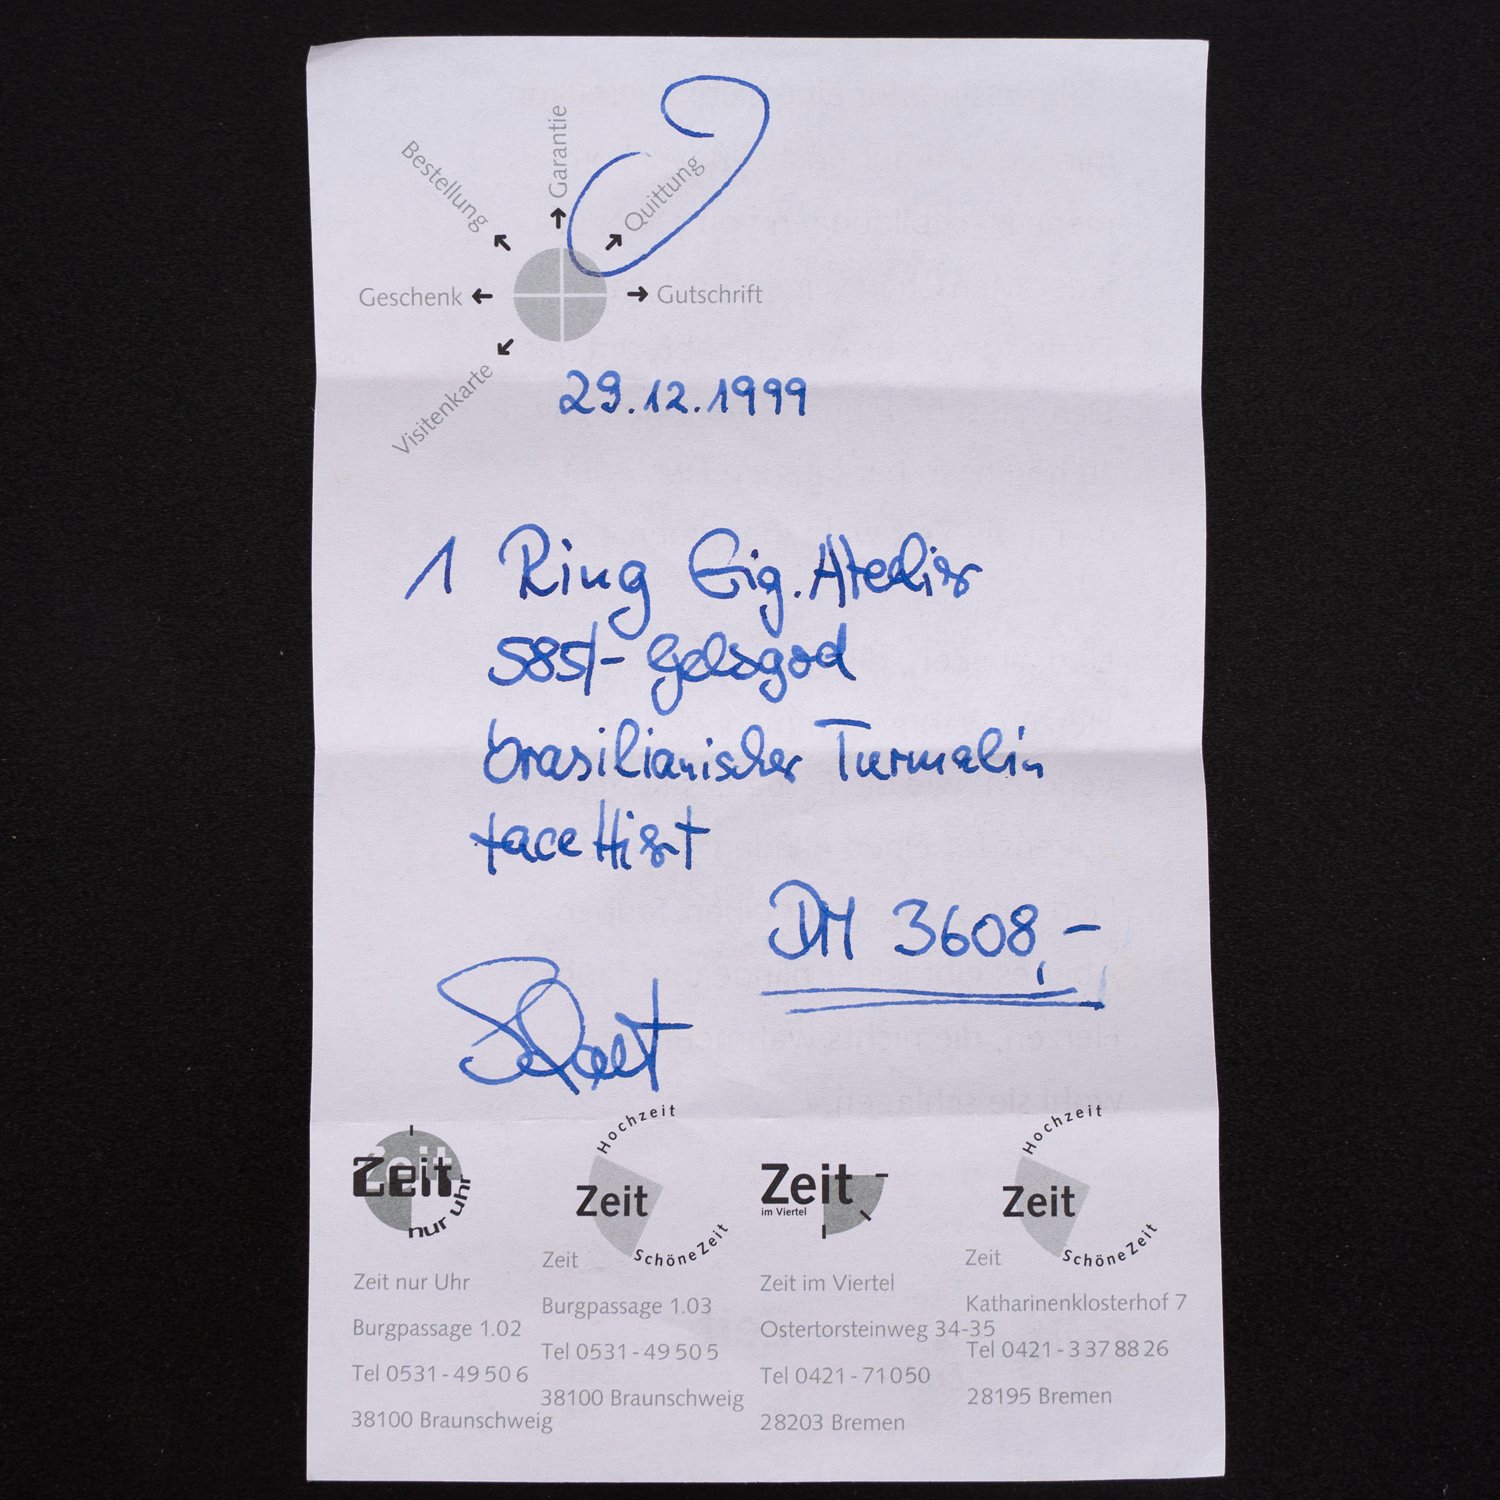 Bestellung
Garantie
Quittung
Geschenk
Gutschrift
Visitenkarte
29.12.1999
1 Ring Eig. Atelier
585/- Gelbgod
brasilianischer Turmalin
facettiert
DM 3608,-
Zeit
Zeit
nur uhr
Hochzeit
Zeit
SchöneZeit
Zeit
im Viertel
Hochzeit
Zeit
SchöneZeit
Zeit nur Uhr
Burgpassage 1.02
Tel 0531-49 50 6
38100 Braunschweig
Zeit
Burgpassage 1.03
Tel 0531-49 50 5
38100 Braunschweig
Zeit im Viertel
Ostertorsteinweg 34-35
Tel 0421-71050
28203 Bremen
Zeit
Katharinenklosterhof 7
Tel 0421-3 37 88 26
28195 Bremen